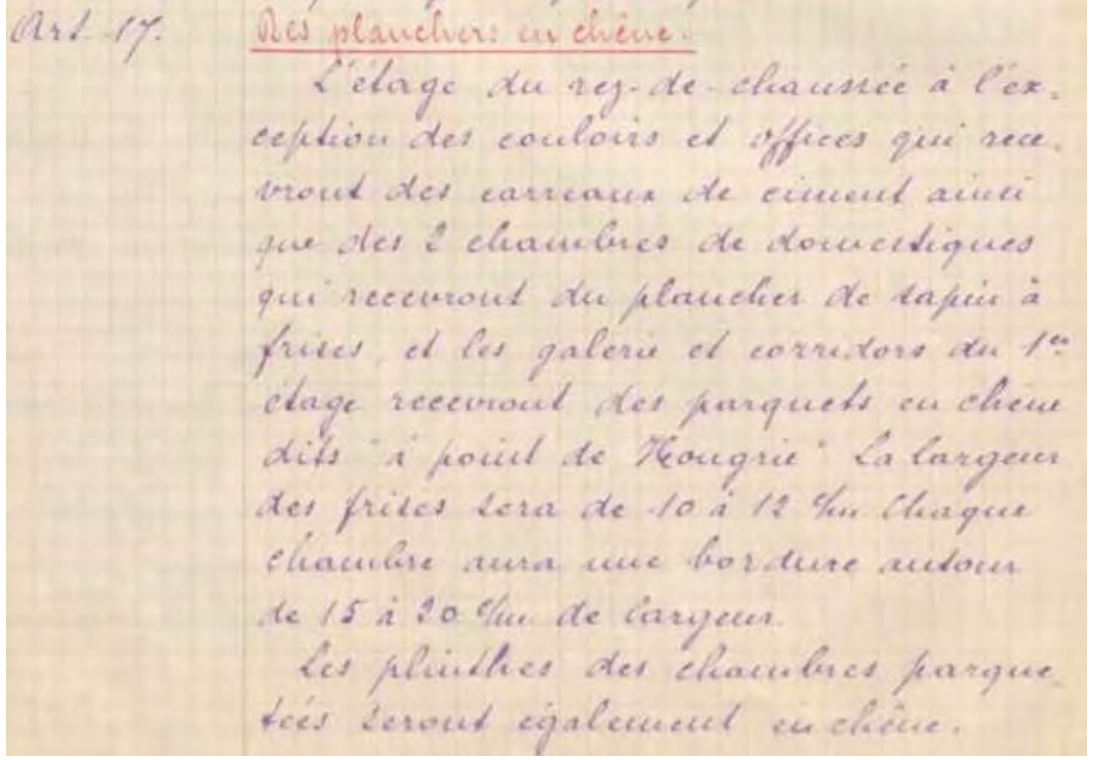 Art. 17. Des planchers en chêne.
L'étage du rez-de-chaussée à l'ex=
ception des couloirs et offices qui rece-
vront des carreaux de ciment ainsi
que des 2 chambres de domestiques
qui recevront du plancher de sapin à
frises, et les galerie et corridors du 1er
étage recevront des parquets en chêne
dits "à point de Hongrie" La largeur
des frises sera de 10 à 12 c/m Chaque
chambre aura une bordure autour
de 15 à 20 c/m de largeur.
Les plinthes des chambres parque-
tées seront également en chêne.